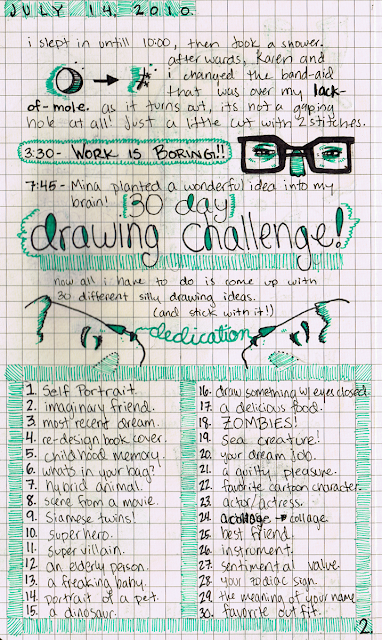 JULY 14, 2010.
i slept in untill 10:00, then took a shower.
afterwards, Karen and
i changed the band-aid
that was over my lack-
of-mole. as it turns out, its not a gaping
hole at all! Just a little cut with 2 stitches.
3:30 - WORK IS BORING!!
7:45 - Mina planted a wonderful idea into my
brain! [30 day]
drawing challenge!
now all i have to do is come up with
30 different silly drawing ideas.
(and stick with it!)
dedication
1. Self Portrait.
2. imaginary friend.
3. most recent dream.
4. re-design book cover.
5. childhood memory.
6. whats in your bag?
7. hybrid animal.
8. scene from a movie.
9. Siamese twins!
10. superhero.
11. super villain.
12. an elderly person.
13. a freaking baby.
14. portrait of a pet.
15. a dinosaur.
16. draw something w/ eyes closed.
17. a delicious food.
18. ZOMBIES!
19. sea creature!
20. your dream job.
21. a guilty pleasure.
22. favorite cartoon character.
23. actor/actress.
24. a collage → collage.
25. best friend.
26. instrument.
27. sentimental value.
28. your zodiac sign.
29. the meaning of your name.
30. favorite outfit.
2